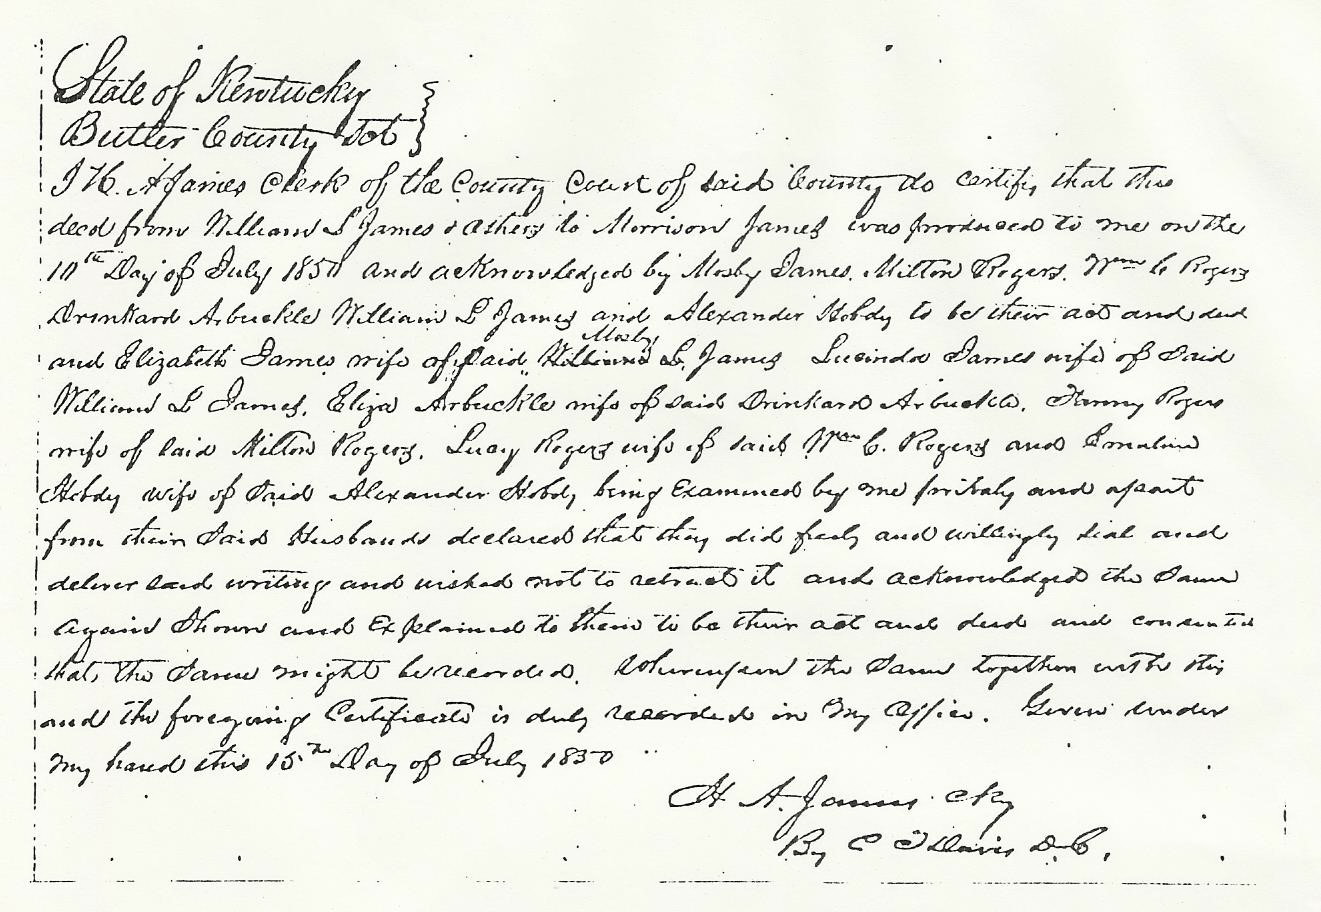 State of Kentucky
Butler County Sct
I H. A James Clerk of the County Court of said County do certify that this
deed from William L James & others to Morrison James was produced to me on the
Day of July 1850 and acknowledged by Mosby James. Milton Rogers. Wm C Rogers
Drinkard Arbuckle William L James and Alexander Hobdy to be their act and deed
and Elizabeth James wife of said Mosby James Lucinda James wife of said
William L James, Eliza Arbuckle wife of said Drinkard Arbuckle. Fanny Rogers
wife of said Milton Rogers. Lucy Rogers wife of said Wm C. Rogers and Emaline
Hobdy wife of said Alexander Hobdy being Examined by me privaly and apart
from their said Husbands declared that they did freely and willingly seal and
deliver said writing and wished not to retract it and acknowledged the same
again Shown and Explained to them to be their act and deed and consented
that the same might be recorded. Whereupon the same together with this
and the foregoing Certificate is duly recorded in my office. Given under
my hand this 15th Day of July 1850
H A. James Clk
By C Davis D.C.